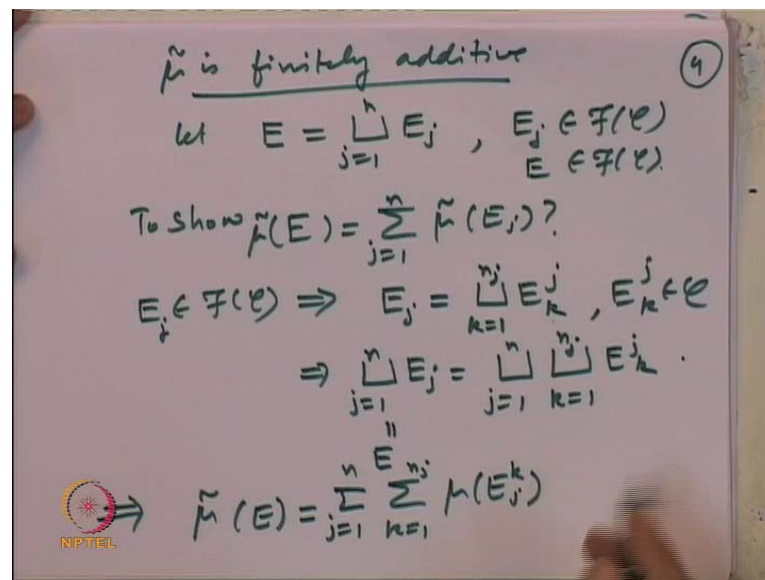 μ̃ is finitely additive
④
let E = ⨆_{j=1}^{n} E_j , E_j ∈ 𝓕(𝒞)
E ∈ 𝓕(𝒞).
To show μ̃(E) = Σ_{j=1}^{n} μ̃(E_j)?
E_j ∈ 𝓕(𝒞) ⇒ E_j = ⨆_{k=1}^{n_j} E_k^j , E_k^j ∈ 𝒞
⇒ ⨆_{j=1}^{n} E_j = ⨆_{j=1}^{n} ⨆_{k=1}^{n_j} E_k^j .
||
E
⇒ μ̃(E) = Σ_{j=1}^{n} Σ_{k=1}^{n_j} μ(E_j^k)
NPTEL